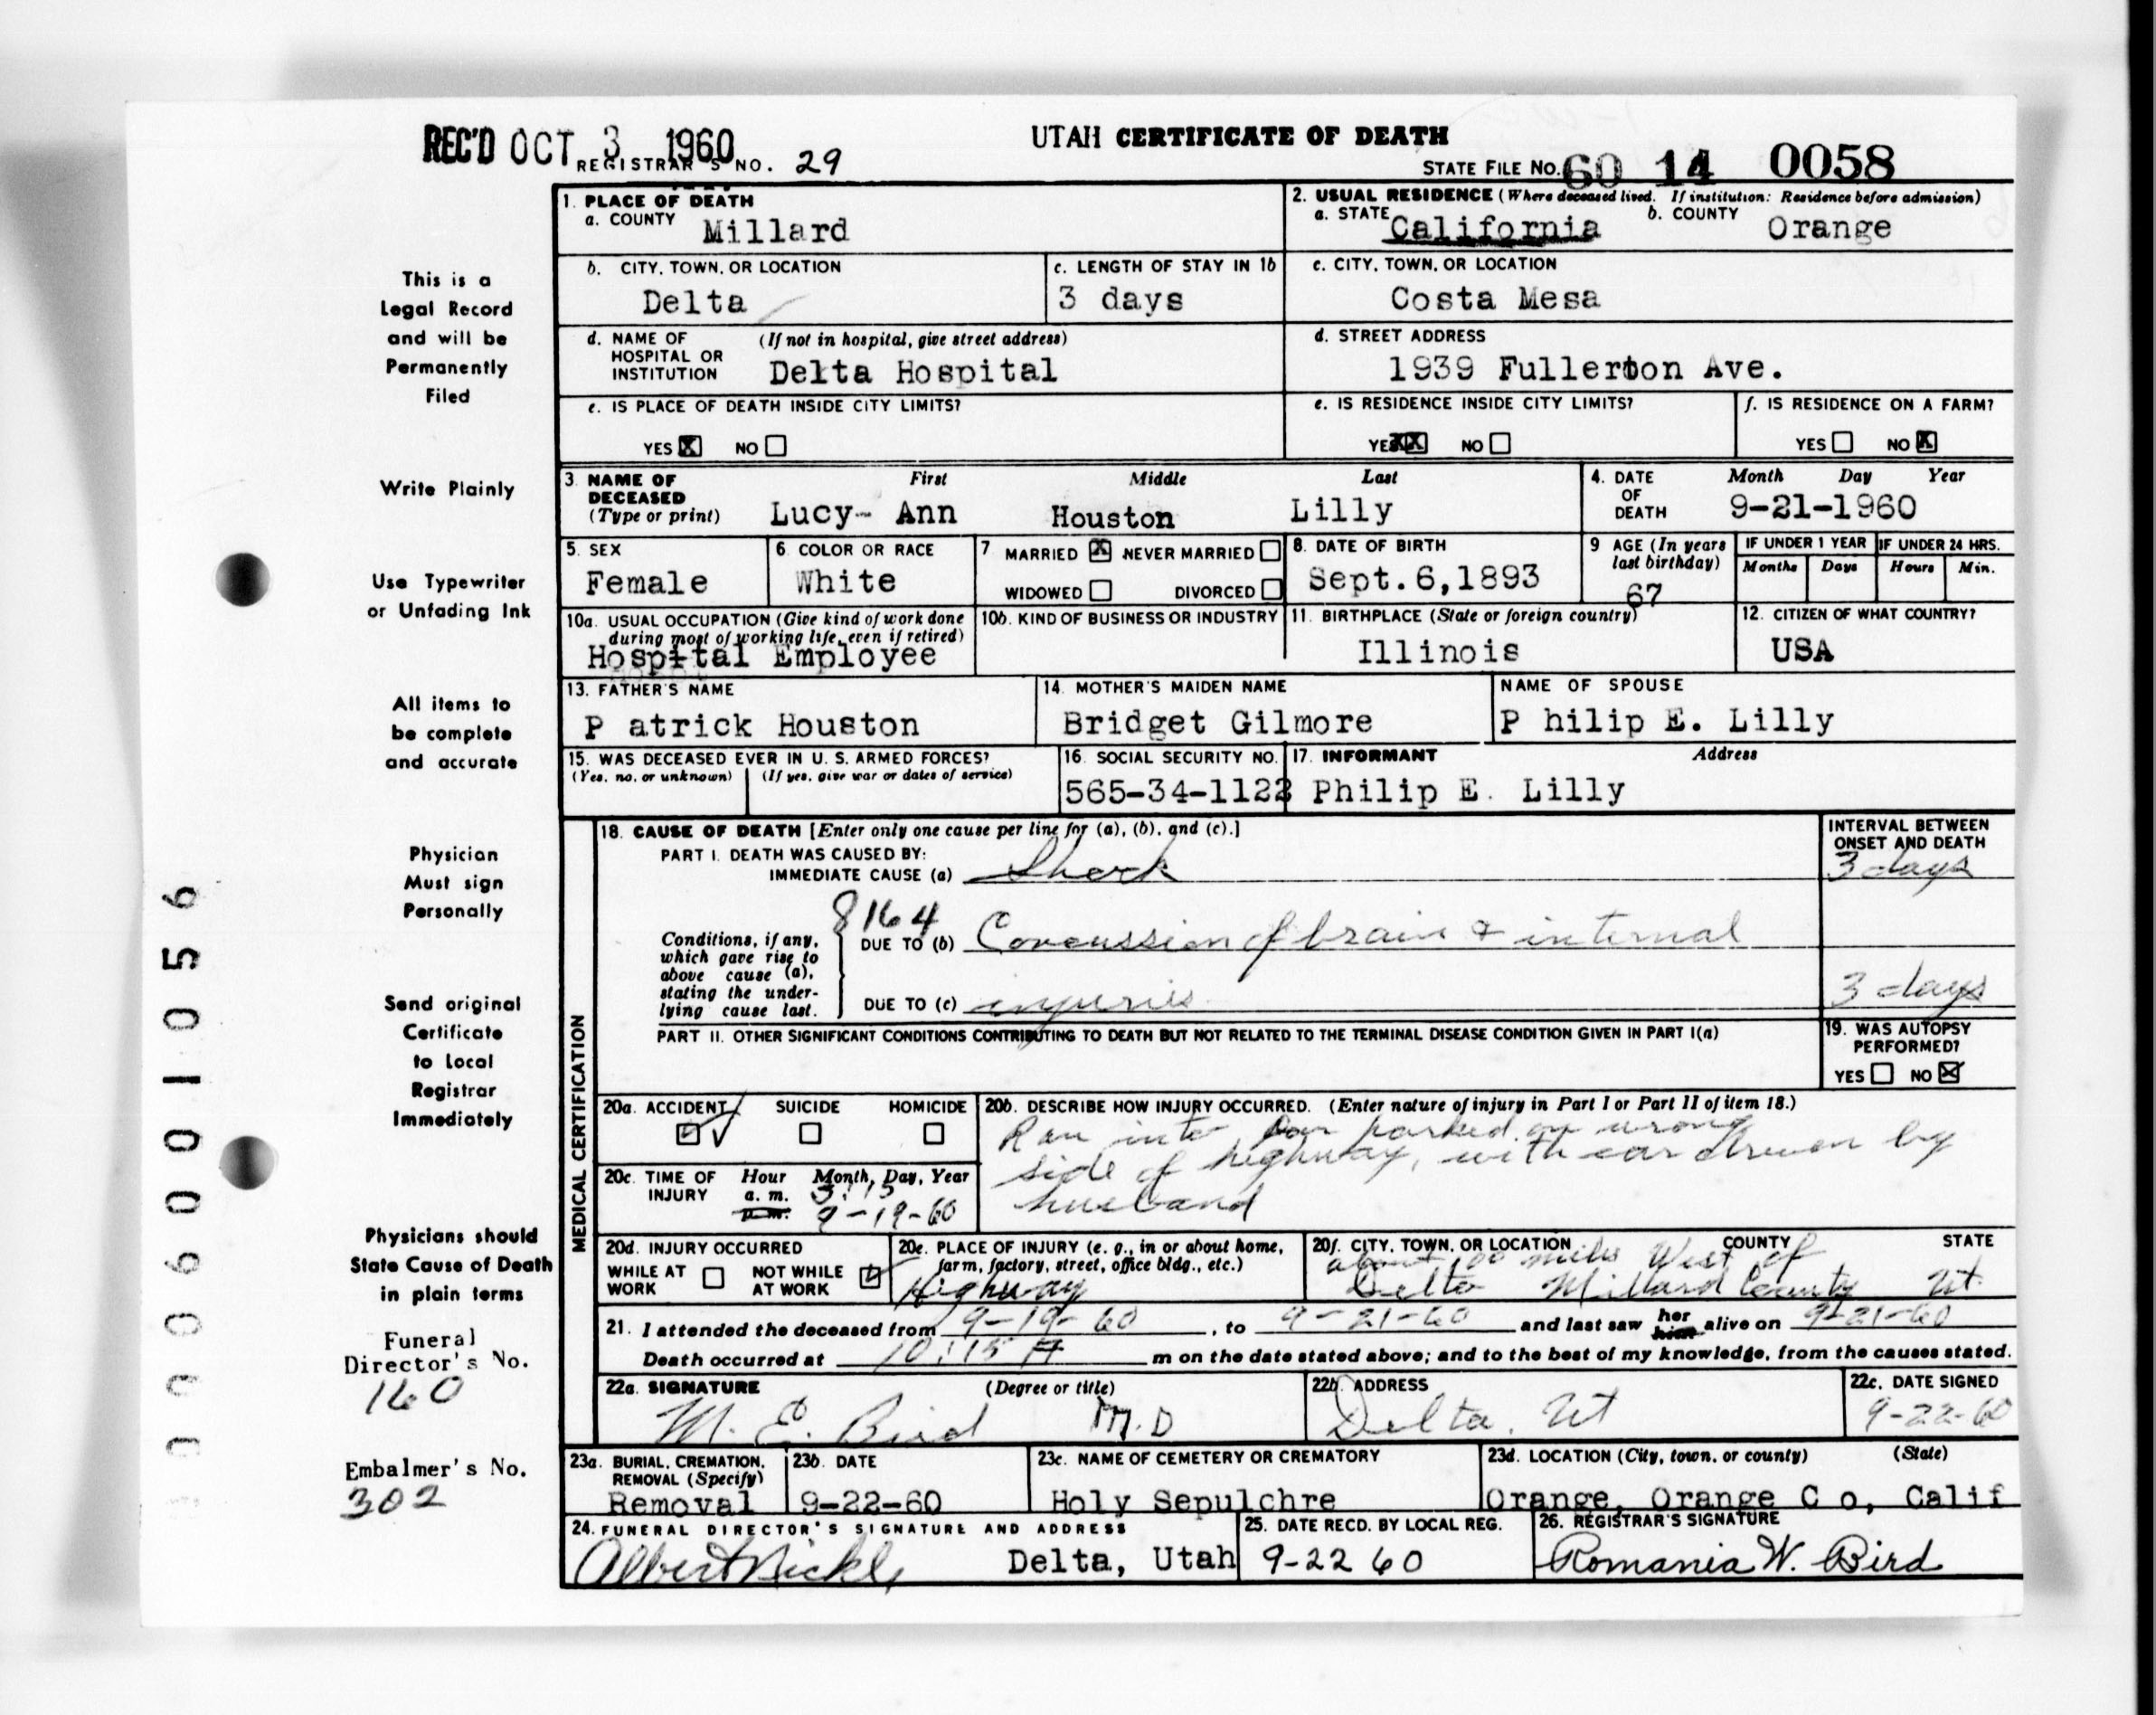 REC'D OCT 3 1960
REGISTRAR'S NO. 29
UTAH CERTIFICATE OF DEATH
STATE FILE NO. 60 14 0058
1. PLACE OF DEATH
a. COUNTY Millard
2. USUAL RESIDENCE (Where deceased lived. If institution: Residence before admission)
a. STATE California b. COUNTY Orange
b. CITY, TOWN, OR LOCATION
Delta
c. LENGTH OF STAY IN 1b
3 days
c. CITY, TOWN, OR LOCATION
Costa Mesa
d. NAME OF HOSPITAL OR INSTITUTION (If not in hospital, give street address)
Delta Hospital
d. STREET ADDRESS
1939 Fullerton Ave.
e. IS PLACE OF DEATH INSIDE CITY LIMITS?
YES X NO
e. IS RESIDENCE INSIDE CITY LIMITS?
YES XX NO
f. IS RESIDENCE ON A FARM?
YES NO X
3. NAME OF DECEASED (Type or print)
First Middle Last
Lucy- Ann Houston Lilly
4. DATE OF DEATH
Month Day Year
9-21-1960
5. SEX
Female
6. COLOR OR RACE
White
7 MARRIED X NEVER MARRIED
WIDOWED DIVORCED
8. DATE OF BIRTH
Sept.6,1893
9 AGE (In years last birthday)
67
IF UNDER 1 YEAR IF UNDER 24 HRS.
Months Days Hours Min.
10a. USUAL OCCUPATION (Give kind of work done during most of working life, even if retired)
Hospital Employee
10b. KIND OF BUSINESS OR INDUSTRY
11. BIRTHPLACE (State or foreign country)
Illinois
12. CITIZEN OF WHAT COUNTRY?
USA
13. FATHER'S NAME
P atrick Houston
14. MOTHER'S MAIDEN NAME
Bridget Gilmore
NAME OF SPOUSE
P hilip E. Lilly
15. WAS DECEASED EVER IN U. S. ARMED FORCES?
(Yes, no, or unknown) (If yes, give war or dates of service)
16. SOCIAL SECURITY NO.
565-34-1122
17. INFORMANT Address
Philip E. Lilly
MEDICAL CERTIFICATION
18. CAUSE OF DEATH [Enter only one cause per line for (a), (b), and (c).]
PART I. DEATH WAS CAUSED BY:
IMMEDIATE CAUSE (a) Shock
INTERVAL BETWEEN ONSET AND DEATH
3 days
8164
Conditions, if any, which gave rise to above cause (a), stating the underlying cause last.
DUE TO (b) Concussion of brain & internal
DUE TO (c) injuries
3 days
PART II. OTHER SIGNIFICANT CONDITIONS CONTRIBUTING TO DEATH BUT NOT RELATED TO THE TERMINAL DISEASE CONDITION GIVEN IN PART I(a)
19. WAS AUTOPSY PERFORMED?
YES NO X
20a. ACCIDENT SUICIDE HOMICIDE
20b. DESCRIBE HOW INJURY OCCURRED. (Enter nature of injury in Part I or Part II of item 18.)
Ran into car parked on wrong
side of highway, with car driven by
husband
20c. TIME OF INJURY
Hour Month, Day, Year
a. m. 3:15
p. m. 9-19-60
20d. INJURY OCCURRED
WHILE AT WORK NOT WHILE AT WORK
20e. PLACE OF INJURY (e. g., in or about home, farm, factory, street, office bldg., etc.)
Highway
20f. CITY, TOWN, OR LOCATION COUNTY STATE
about 100 miles West of
Delta Millard County Ut.
21. I attended the deceased from 9-19-60, to 9-21-60 and last saw her him alive on 9-21-60
Death occurred at 10:15 A m on the date stated above; and to the best of my knowledge, from the causes stated.
22a. SIGNATURE (Degree or title)
M. E. Bird M.D
22b. ADDRESS
Delta, Ut
22c. DATE SIGNED
9-22-60
23a. BURIAL, CREMATION, REMOVAL (Specify)
Removal
23b. DATE
9-22-60
23c. NAME OF CEMETERY OR CREMATORY
Holy Sepulchre
23d. LOCATION (City, town, or county) (State)
Orange, Orange C o, Calif
24. FUNERAL DIRECTOR'S SIGNATURE AND ADDRESS
Albert Nickle Delta, Utah
25. DATE RECD. BY LOCAL REG.
9-22 60
26. REGISTRAR'S SIGNATURE
Romania W. Bird
This is a
Legal Record
and will be
Permanently
Filed
Write Plainly
Use Typewriter
or Unfading Ink
All items to
be complete
and accurate
Physician
Must sign
Personally
Send original
Certificate
to Local
Registrar
Immediately
Physicians should
State Cause of Death
in plain terms
Funeral
Director's No.
160
Embalmer's No.
302